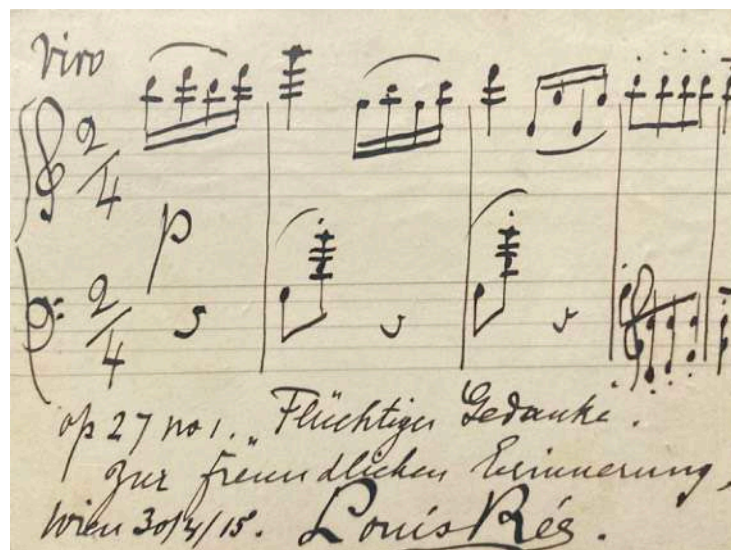 Vivo
2/4
p
2/4
op 27 no 1. „Flüchtiger Gedanke".
zur freundlichen Erinnerung,
Wien 30/4/15. Louis Rée.